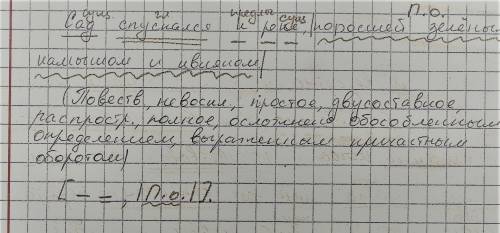 сущ гл предлог сущ П.о.
Сад спускался к реке, |поросшей зелёным
камышом и ивняком|
(Повеств, невоскл, простое, двусоставное,
распростр., полное, осложнено обособленным
определением, выраженным причастным
оборотом)
[– =, |П.о.|].